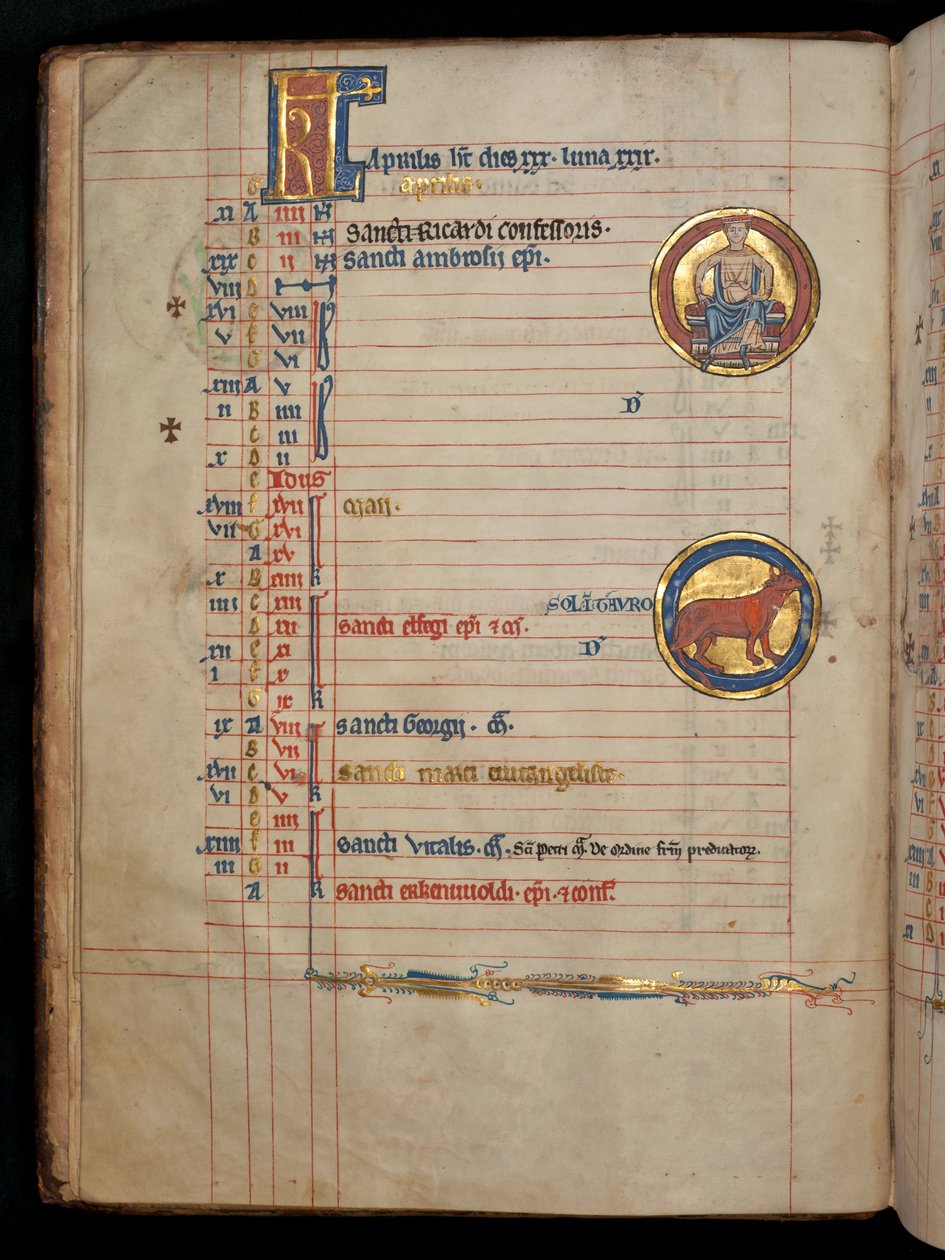 KL Aprilis ht dies xxx. luna xxix.
G aprilis.
xi A iiii N
B iii N Sancti Ricardi confessoris.
xix C ii N Sancti ambrosij epi.
viii D
xvi e viii
v f vii
G vi
xiii A v
ii B iiii D
C iii
x D ii
e Idus
xviii f xvii maii.
vii G xvi
A xv
x B xiiii k
iiii C xiii SOL I TAVRO
D xii sancti elfegi epi & m.
xii e xi D
i f x
G ix k
ix A viii sancti Georgij. m.
B vii
xvii C vi sancti marci euuangeliste.
vi D v k
e iiii
xiiii f iii sancti Vitalis. m. Sci petri m. de ordine frm predicatorum.
iii G ii
A k sancti erkenwoldi. epi. & conf.